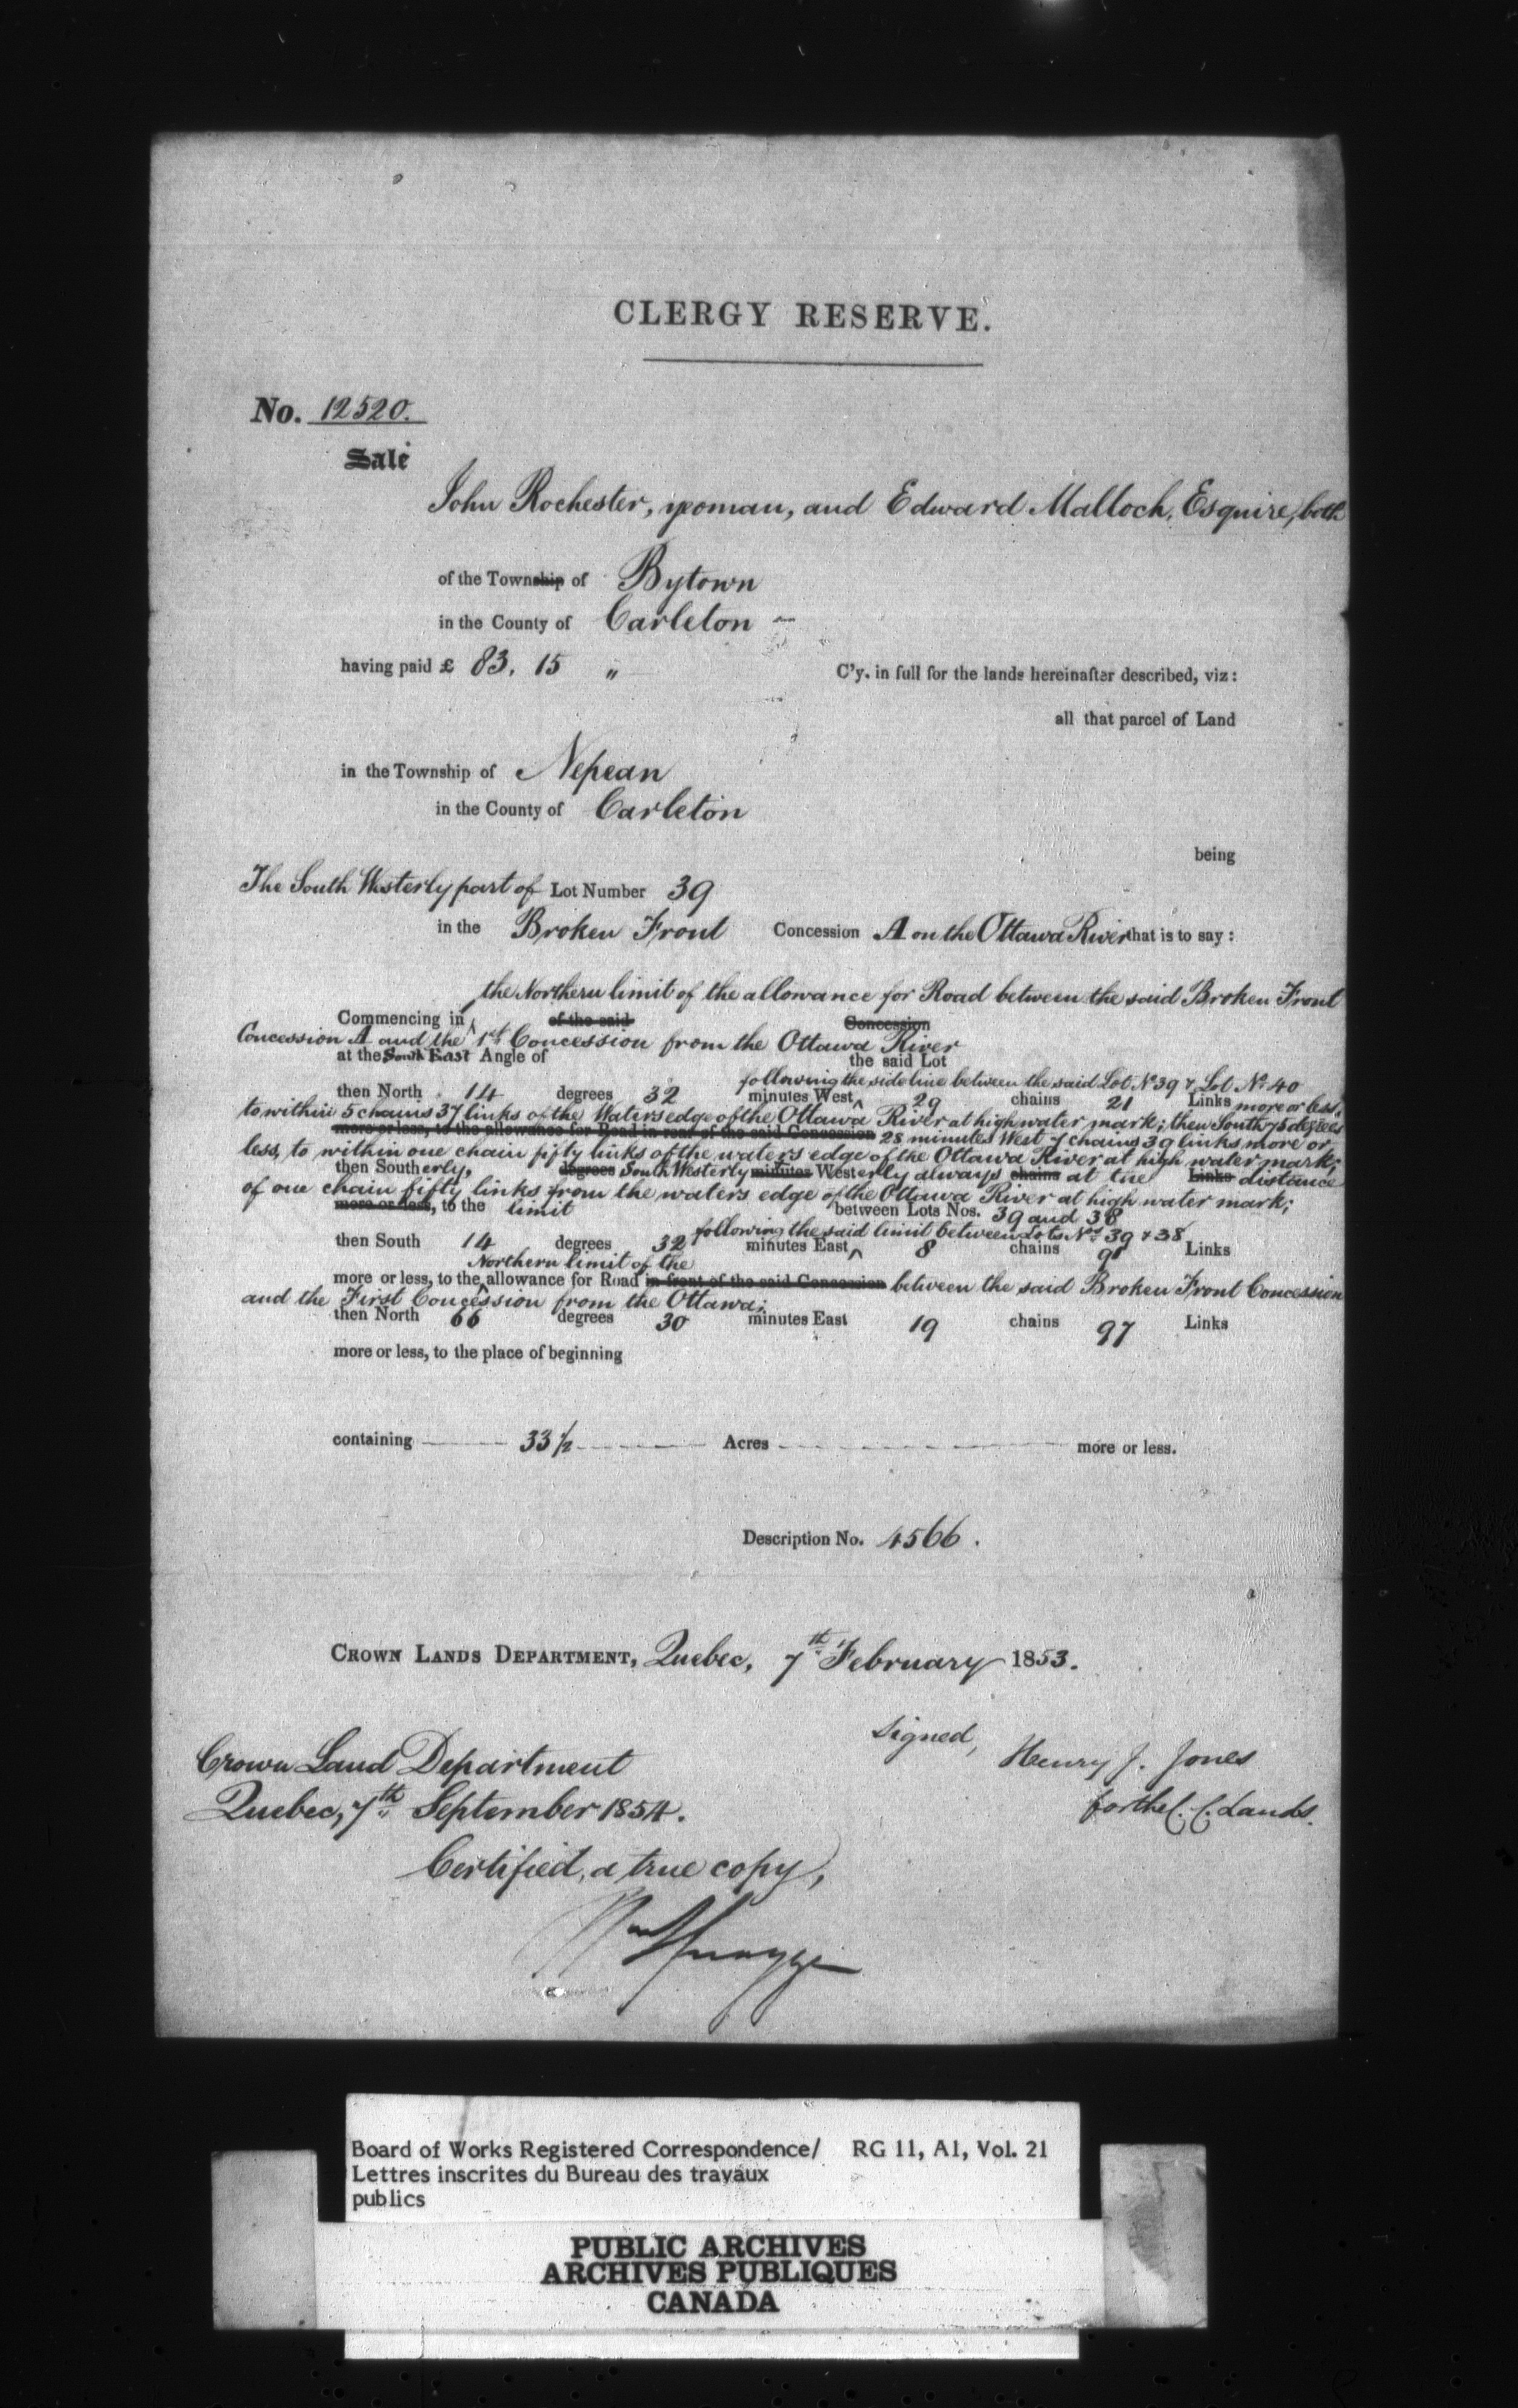 CLERGY RESERVE.
No. 12520.
Sale
John Rochester, yeoman, and Edward Malloch, Esquire, both
of the Township of Bytown
in the County of Carleton
having paid £ 83. 15 " C'y. in full for the lands hereinafter described, viz:
all that parcel of Land
in the Township of Nepean
in the County of Carleton
being
The South Westerly part of Lot Number 39
in the Broken Front Concession A on the Ottawa River that is to say:
the Northern limit of the allowance for Road between the said Broken Front
Commencing in of the said Concession
Concession A and the 1st Concession from the Ottawa River
at the South East Angle of the said Lot
following the side line between the said Lot No 39 & Lot No 40
then North 14 degrees 32 minutes West 29 chains 21 Links more or less,
to within 5 chains 37 links of the Waters edge of the Ottawa River at high water mark; then South 75 degrees
more or less, to the allowance for Road in rear of the said Concession 28 minutes West 7 chains 39 links more or
less, to within one chain fifty links of the waters edge of the Ottawa River at high water mark;
then Southerly, degrees South Westerly minutes Westerly always chains at the Links distance
of one chain fifty links from the waters edge of the Ottawa River at high water mark;
more or less, to the limit between Lots Nos. 39 and 38
following the said limit between Lots Nos 39 & 38
then South 14 degrees 32 minutes East 8 chains 91 Links
Northern limit of the
more or less, to the allowance for Road in front of the said Concession between the said Broken Front Concession
and the First Concession from the Ottawa;
then North 66 degrees 30 minutes East 19 chains 97 Links
more or less, to the place of beginning
containing 33 1/2 Acres more or less.
Description No. 4566.
CROWN LANDS DEPARTMENT, Quebec, 7th February 1853.
Signed, Henry J. Jones
for the C. C. Lands.
Crown Land Department
Quebec, 7th September 1854.
Certified, a true copy,
Board of Works Registered Correspondence/ RG 11, A1, Vol. 21
Lettres inscrites du Bureau des travaux
publics
PUBLIC ARCHIVES
ARCHIVES PUBLIQUES
CANADA